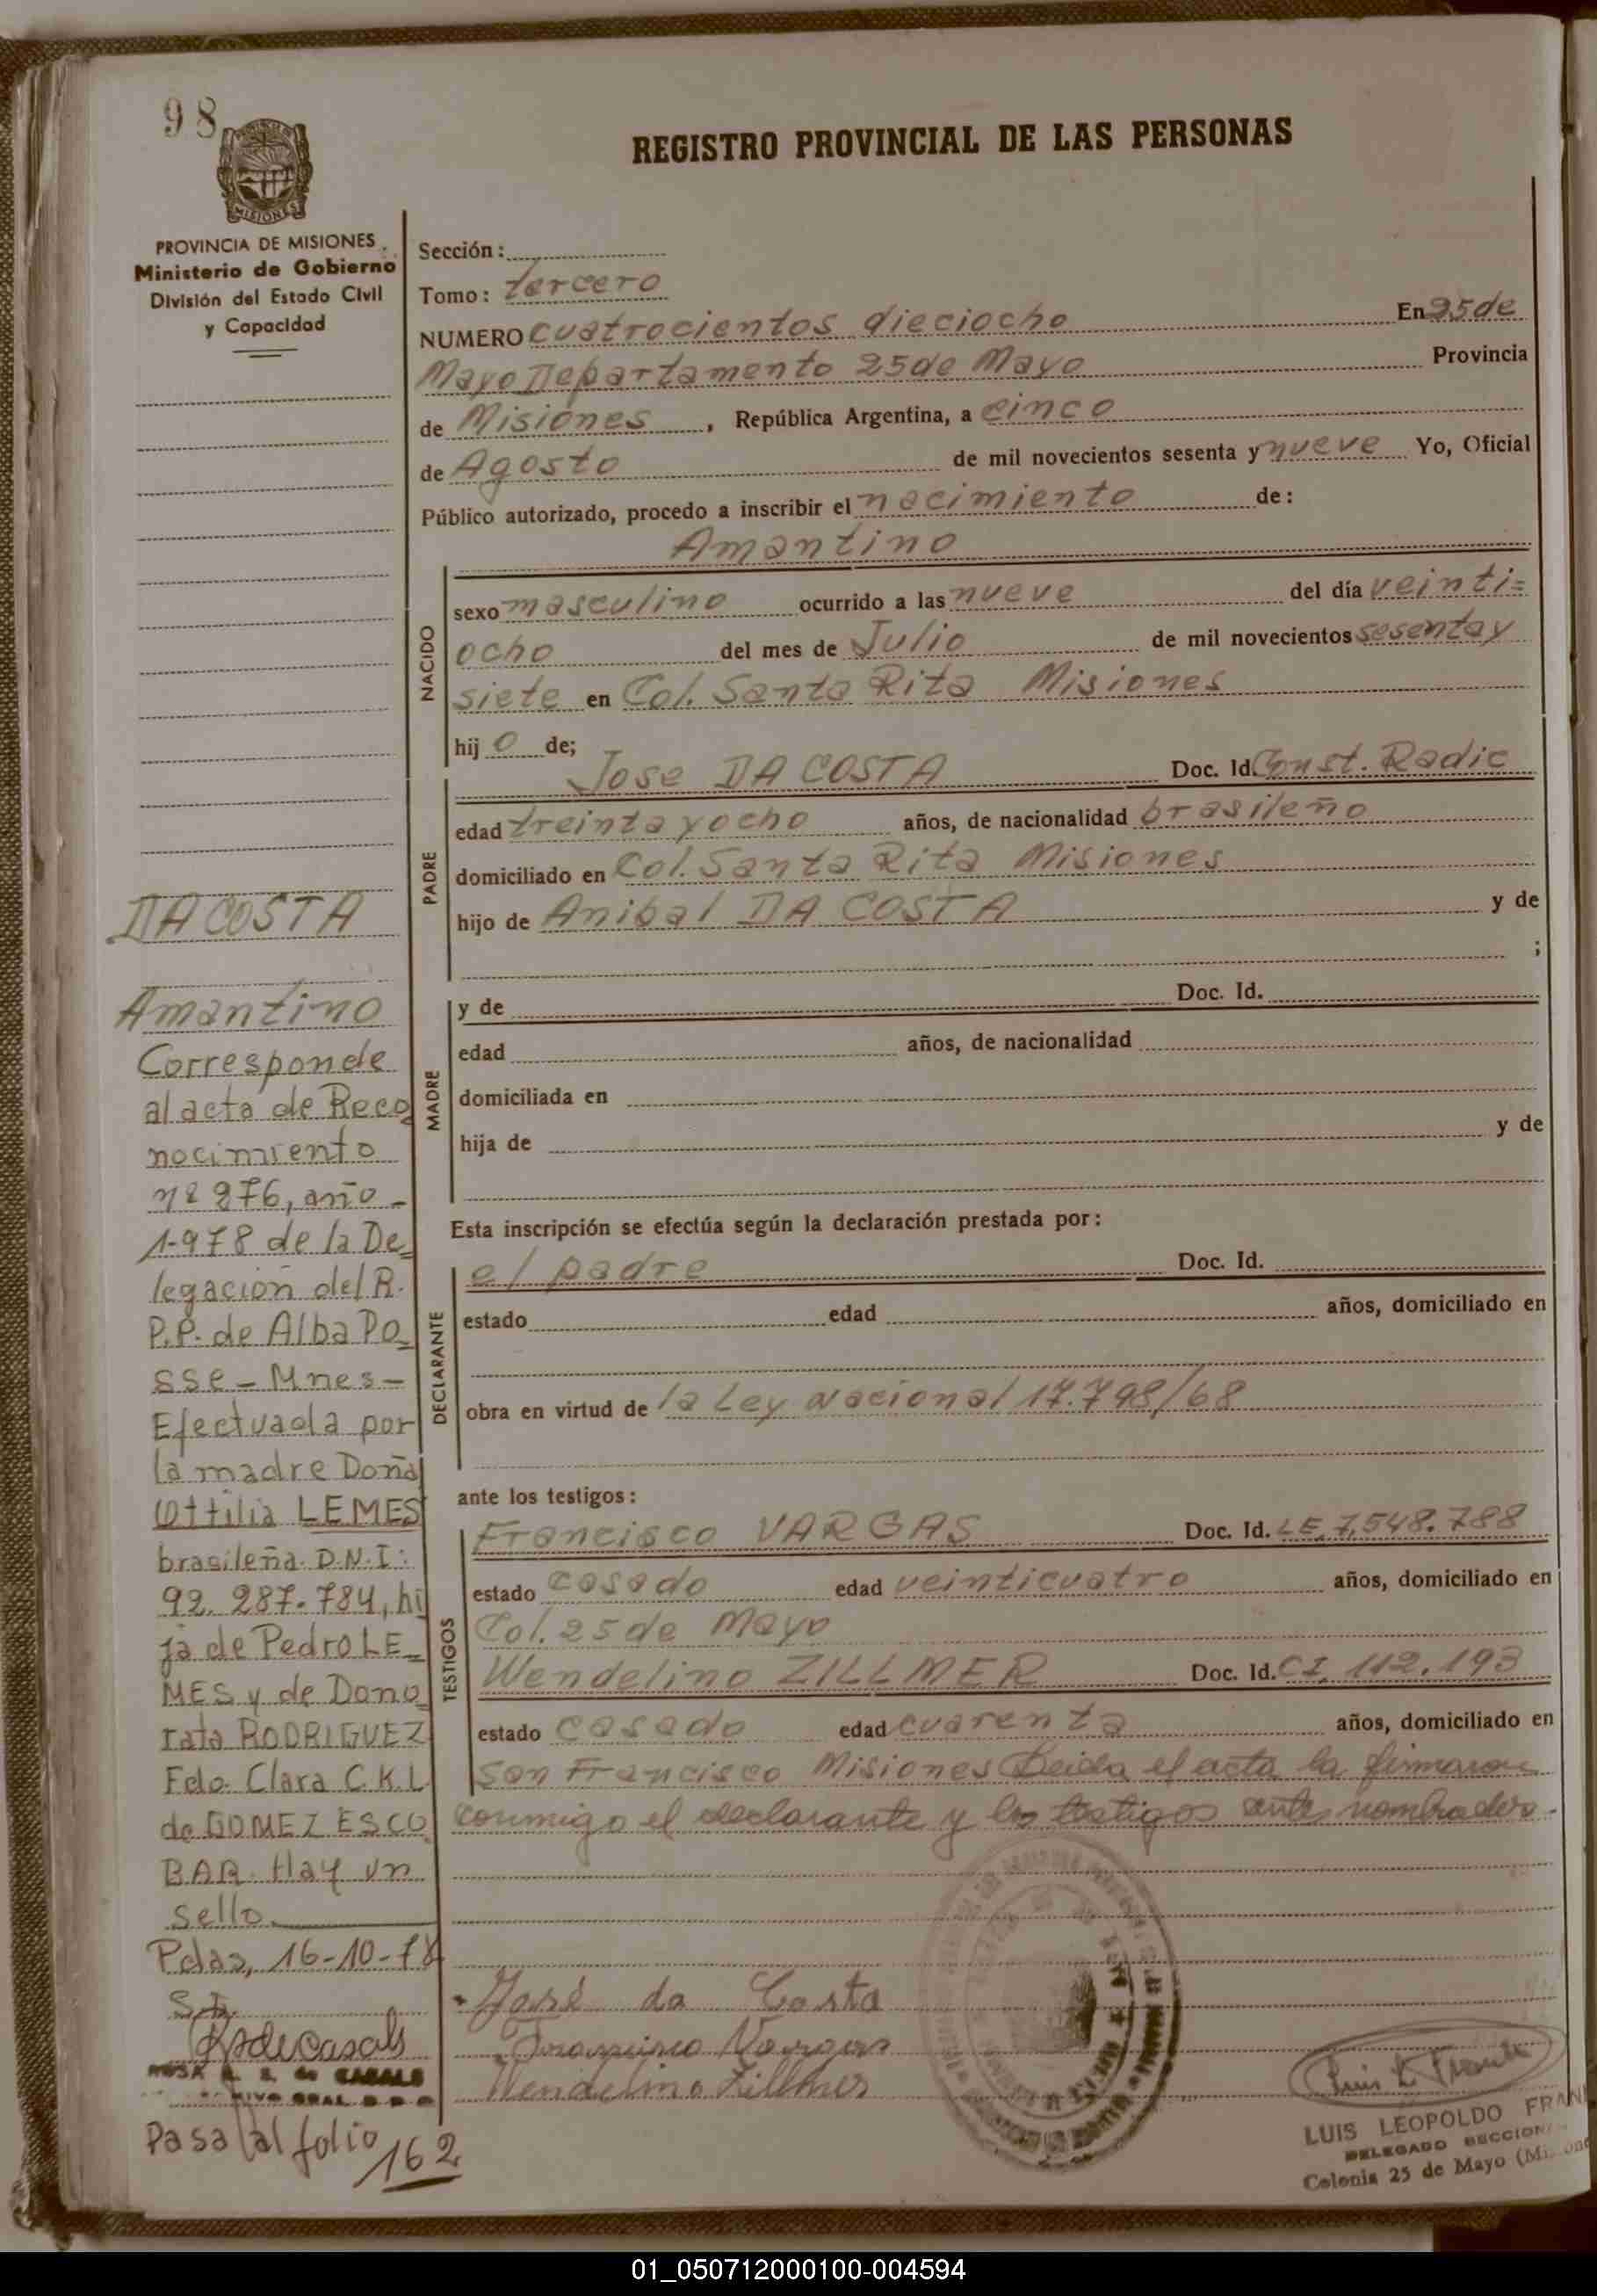 98
REGISTRO PROVINCIAL DE LAS PERSONAS
MISIONES
PROVINCIA DE MISIONES
Ministerio de Gobierno
División del Estado Civil
y Capacidad
Sección:
Tomo: tercero
NUMERO cuatrocientos dieciocho En 25 de
Mayo Departamento 25 de Mayo Provincia
de Misiones, República Argentina, a cinco
de Agosto de mil novecientos sesenta y nueve Yo, Oficial
Público autorizado, procedo a inscribir el nacimiento de:
Amantino
NACIDO
sexo masculino ocurrido a las nueve del día veinti=
ocho del mes de Julio de mil novecientos sesenta y
siete en Col. Santa Rita Misiones
hij o de;
PADRE
Jose DA COSTA Doc. Id. Const. Radic
edad treinta y ocho años, de nacionalidad brasileño
domiciliado en Col. Santa Rita Misiones
hijo de Anibal DA COSTA y de
;
MADRE
y de Doc. Id.
edad años, de nacionalidad
domiciliada en
hija de y de
Esta inscripción se efectúa según la declaración prestada por:
DECLARANTE
el padre Doc. Id.
estado edad años, domiciliado en
obra en virtud de la Ley Nacional 17.798/68
ante los testigos:
TESTIGOS
Francisco VARGAS Doc. Id. LE. 7.548.788
estado casado edad veinticuatro años, domiciliado en
Col. 25 de Mayo
Wendelino ZILLMER Doc. Id. CI. 112.193
estado casado edad cuarenta años, domiciliado en
San Francisco Misiones Leida el acta la firmaron
conmigo el declarante y los testigos antes nombrados.
José da Costa
Francisco Vargas
Wendelino Zillmer
LUIS LEOPOLDO FRAN
DELEGADO SECCION
Colonia 25 de Mayo (Misiones
DA COSTA
Amantino
Corresponde
al acta de Reco
nocimiento
nº 276, año
1978 de la De
legación del R.
P.P. de Alba Po
sse - Mnes -
Efectuada por
la madre Doña
Ottilia LEMES
brasileña D.N.I:
92.287.784, hi
ja de Pedro LE
MES y de Dono
rata RODRIGUEZ
Fdo. Clara C.K.L
de GOMEZ ESCO
BAR. Hay un
sello
Pdas, 16-10-78
de Casals
ROSA de CASALS
Pasa al folio 162
01_050712000100-004594